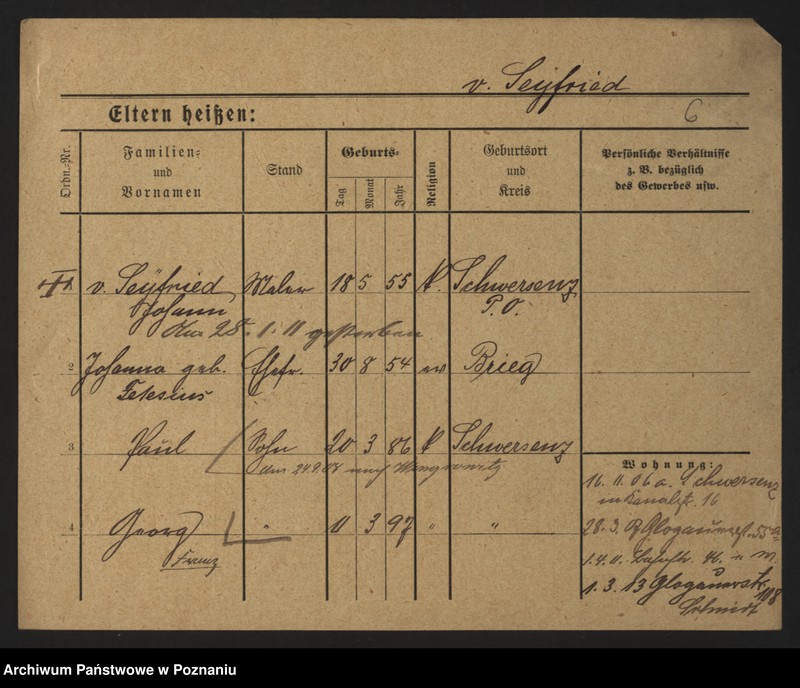 v. Seyfried
6
Eltern heißen:
Ordn.-Nr.
Familien-
und
Vornamen
Stand
Geburts-
Tag
Monat
Jahr
Religion
Geburtsort
und
Kreis
Persönliche Verhältnisse
z. B. bezüglich
des Gewerbes usw.
v. Seyfried Maler 18 5 55 k. Schwersenz
Johann P. O.
am 28. 1. 11 gestorben
2 Johanna geb. Ehefr. 30 8 54 ev Brieg
3 Paul Sohn 20 3 86 k Schwersenz
am 24.9.08 nach Wongrowitz
4 Georg " 11 3 97 " "
Franz
Wohnung:
16. 11. 06 a. Schwersenz
in Kanalstr. 16
28. 3. Glogauerst. 55a
1. 4. 11.
1. 3. 13 Glogauerstr. 108
Archiwum Państwowe w Poznaniu